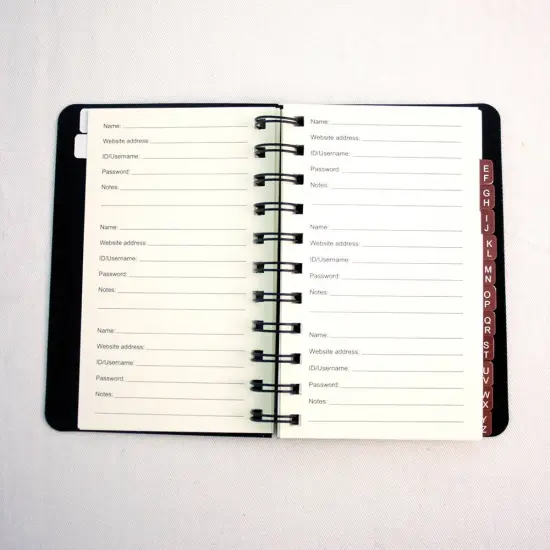 Name:
Website address:
ID/Username:
Password:
Notes:
Name:
Website address:
ID/Username:
Password:
Notes:
Name:
Website address:
ID/Username:
Password:
Notes:
Name:
Website address:
ID/Username:
Password:
Notes:
Name:
Website address:
ID/Username:
Password:
Notes:
Name:
Website address:
ID/Username:
Password:
Notes:
E
F
G
H
I
J
K
L
M
N
O
P
Q
R
S
T
U
V
W
X
Y
Z